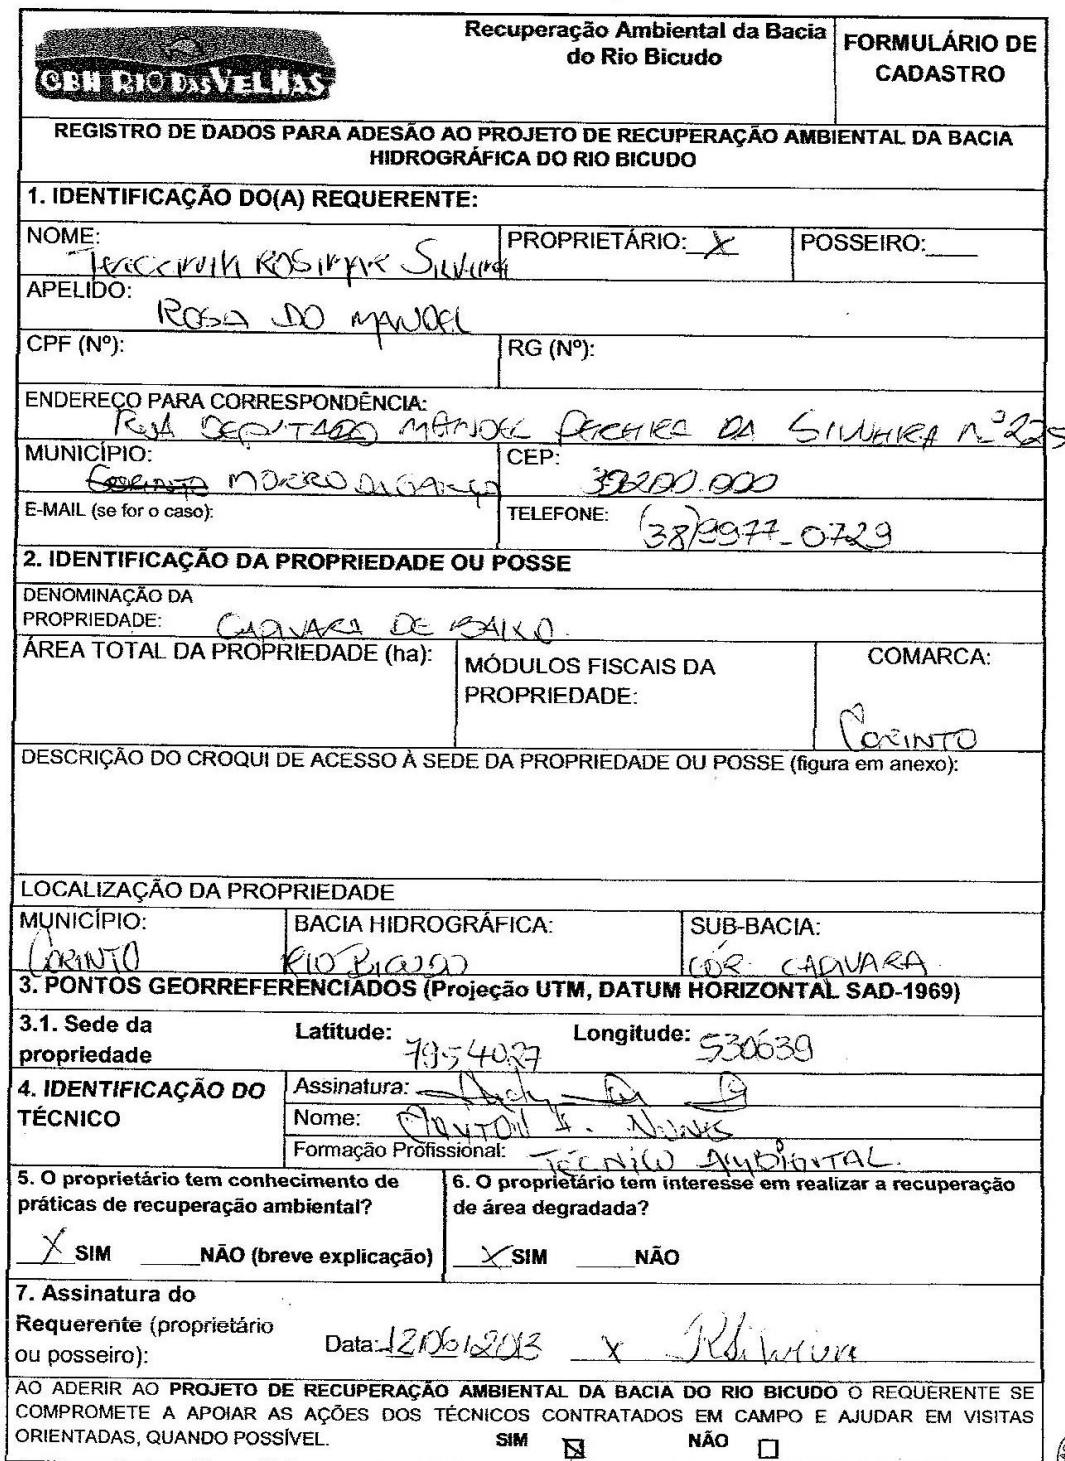 CBH RIO DAS VELHAS
Recuperação Ambiental da Bacia
do Rio Bicudo
FORMULÁRIO DE
CADASTRO
REGISTRO DE DADOS PARA ADESÃO AO PROJETO DE RECUPERAÇÃO AMBIENTAL DA BACIA
HIDROGRÁFICA DO RIO BICUDO
1. IDENTIFICAÇÃO DO(A) REQUERENTE:
NOME: ROSIMAR SILVEIRA
PROPRIETÁRIO: X
POSSEIRO:____
APELIDO: ROSA DO MANOEL
CPF (Nº):
RG (Nº):
ENDEREÇO PARA CORRESPONDÊNCIA:
RUA DEPUTADO MANOEL PEREIRA DA SILVEIRA nº 225
MUNICÍPIO: CORINTO MORRO DA GARÇA
CEP: 39200.000
E-MAIL (se for o caso):
TELEFONE: (38)9977-0729
2. IDENTIFICAÇÃO DA PROPRIEDADE OU POSSE
DENOMINAÇÃO DA
PROPRIEDADE: CAPIVARA DE BAIXO.
ÁREA TOTAL DA PROPRIEDADE (ha):
MÓDULOS FISCAIS DA
PROPRIEDADE:
COMARCA:
CORINTO
DESCRIÇÃO DO CROQUI DE ACESSO À SEDE DA PROPRIEDADE OU POSSE (figura em anexo):
LOCALIZAÇÃO DA PROPRIEDADE
MUNICÍPIO:
CORINTO
BACIA HIDROGRÁFICA:
RIO BICUDO
SUB-BACIA:
CÓR. CAPIVARA.
3. PONTOS GEORREFERENCIADOS (Projeção UTM, DATUM HORIZONTAL SAD-1969)
3.1. Sede da
propriedade
Latitude: 7954027
Longitude: 530639
4. IDENTIFICAÇÃO DO
TÉCNICO
Assinatura:
Nome: CLAYTON NUNES
Formação Profissional: TÉCNICO AMBIENTAL.
5. O proprietário tem conhecimento de
práticas de recuperação ambiental?
X SIM ____NÃO (breve explicação)
6. O proprietário tem interesse em realizar a recuperação
de área degradada?
X SIM ____NÃO
7. Assinatura do
Requerente (proprietário
ou posseiro):
Data: 12/06/2013 X RSilveira
AO ADERIR AO PROJETO DE RECUPERAÇÃO AMBIENTAL DA BACIA DO RIO BICUDO O REQUERENTE SE
COMPROMETE A APOIAR AS AÇÕES DOS TÉCNICOS CONTRATADOS EM CAMPO E AJUDAR EM VISITAS
ORIENTADAS, QUANDO POSSÍVEL. SIM ☒ NÃO ☐